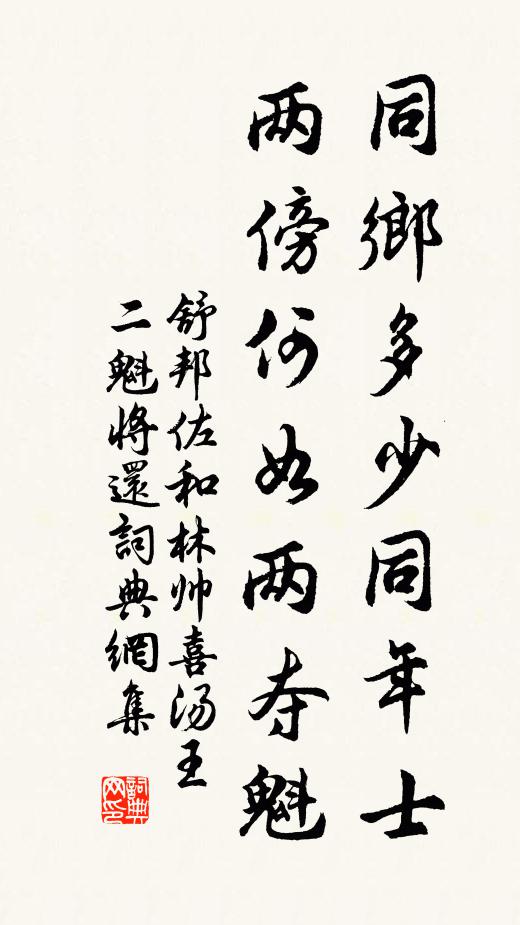 同鄉多少同年士
两傍何如两夺魁
舒邦佐和林帅喜汤王
二魁将還詞典網集
詞典
网印